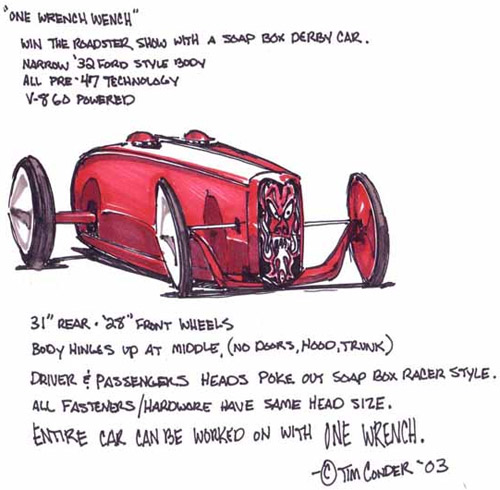 "ONE WRENCH WENCH"
WIN THE ROADSTER SHOW WITH A SOAP BOX DERBY CAR.
NARROW '32 FORD STYLE BODY
ALL PRE-'47 TECHNOLOGY
V-8 60 POWERED
31" REAR · "28" FRONT WHEELS
BODY HINGES UP AT MIDDLE, (NO DOORS, HOOD, TRUNK)
DRIVER & PASSENGERS HEADS POKE OUT SOAP BOX RACER STYLE.
ALL FASTENERS/HARDWARE HAVE SAME HEAD SIZE.
ENTIRE CAR CAN BE WORKED ON WITH ONE WRENCH.
-© TIM CONDER '03